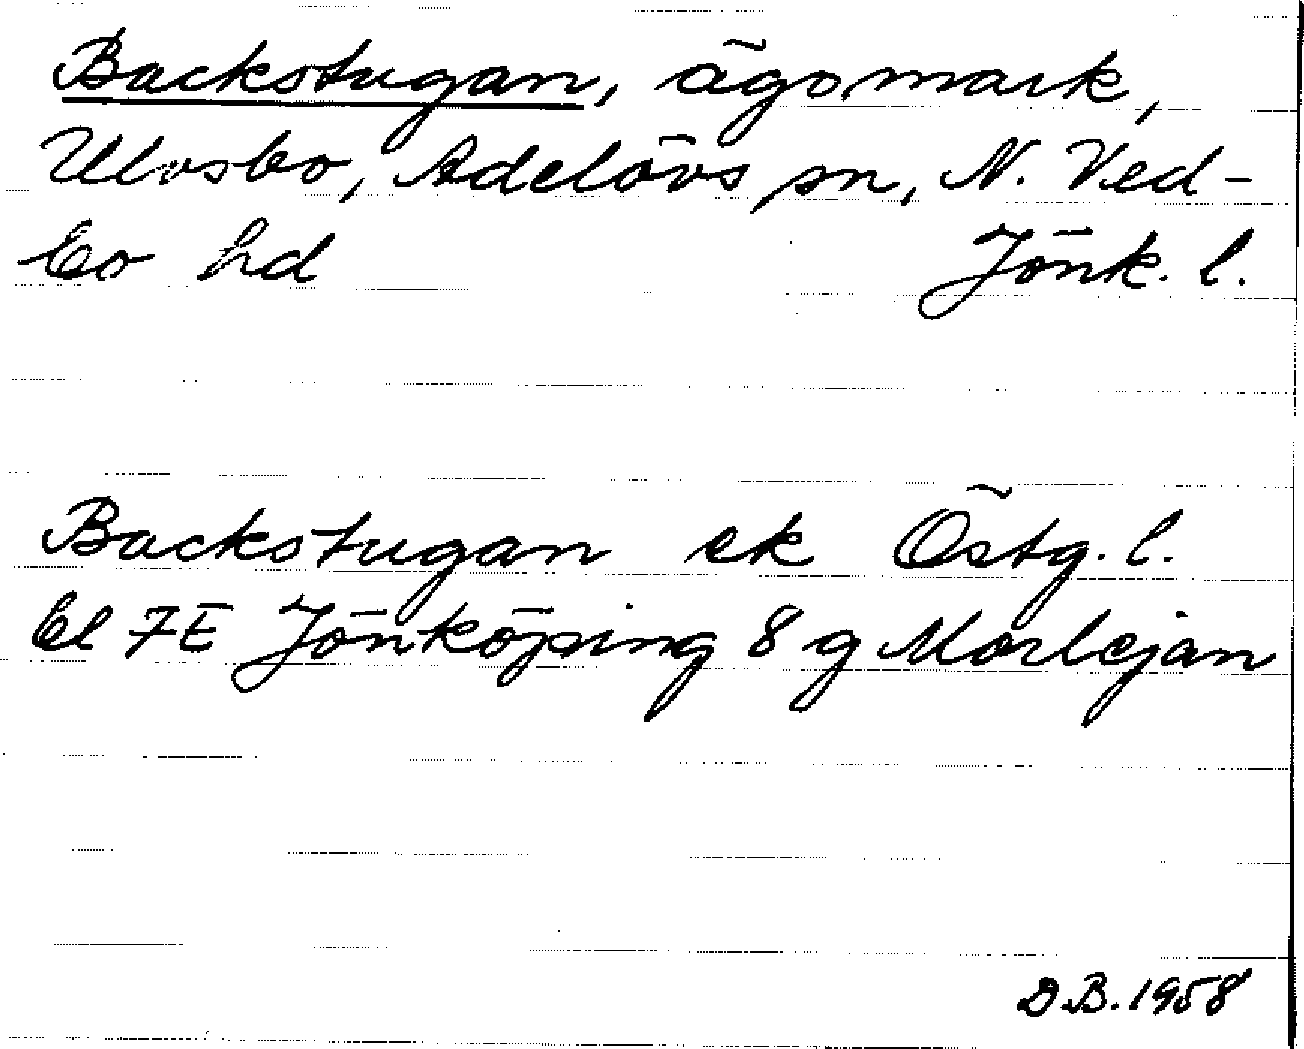 Backstugan, ägomark,
Ulvsbo, Adelövs sn, N. Ved-
bo hd Jönk. l.
Backstugan ek Östg. l.
bl 7E Jönköping 8 g Marbejan
D.B. 1958